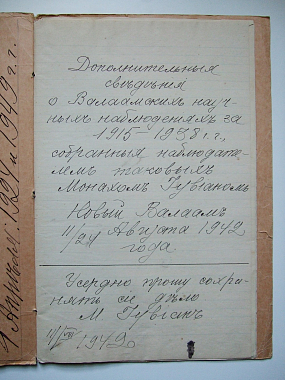 Дополнительныя
свѣдѣнія
о Валаамскихъ науч-
ныхъ наблюденіяхъ за
1915-1938 г.г.,
собранныя наблюдате-
лемъ таковыхъ
Монахомъ Іувіаномъ
Новый Валаамъ
11/24 Августа 1942
года
Усердно прошу сохра-
нять сіе дѣло
М Іувіанъ
11/VIII 1942
1924 и 1949 г.г.